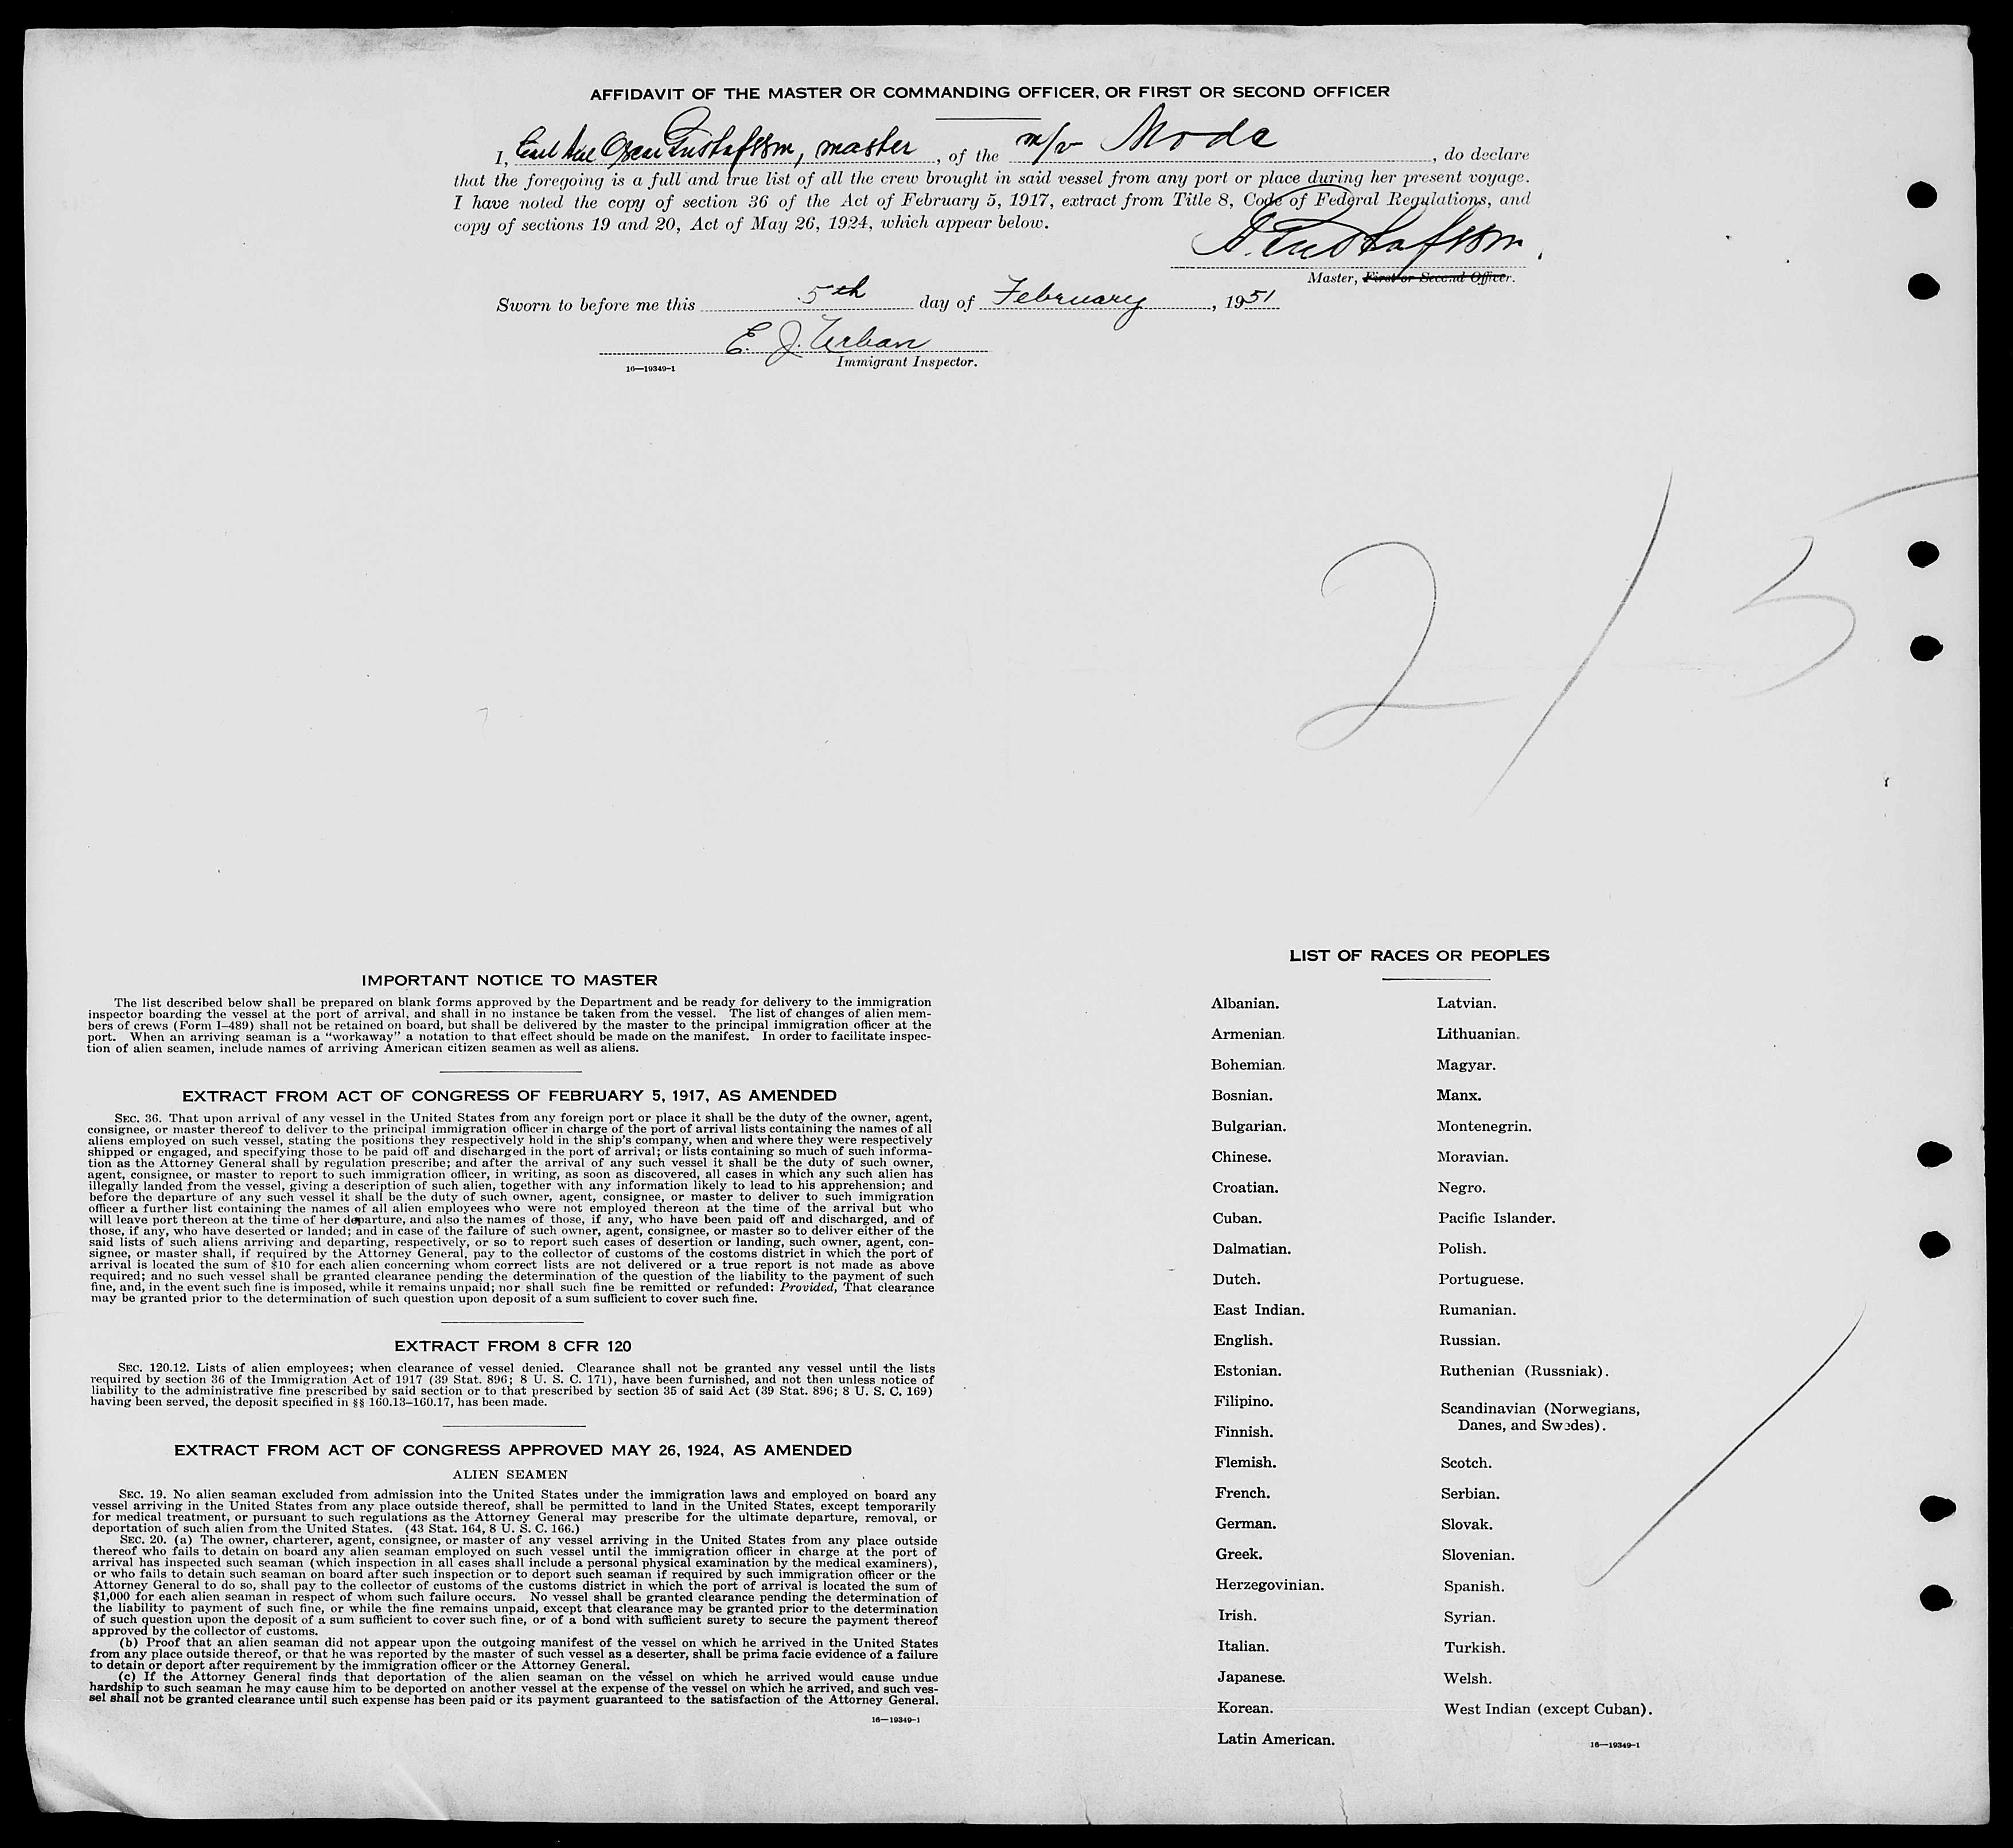 AFFIDAVIT OF THE MASTER OR COMMANDING OFFICER, OR FIRST OR SECOND OFFICER
I, Oscar Gustafsson, master, of the m/v Mode, do declare
that the foregoing is a full and true list of all the crew brought in said vessel from any port or place during her present voyage.
I have noted the copy of section 36 of the Act of February 5, 1917, extract from Title 8, Code of Federal Regulations, and
copy of sections 19 and 20, Act of May 26, 1924, which appear below.
Gustafsson.
Master, First or Second Officer.
Sworn to before me this 5th day of February, 1951
E. J. Urban
16—19349-1 Immigrant Inspector.
2/5
IMPORTANT NOTICE TO MASTER
The list described below shall be prepared on blank forms approved by the Department and be ready for delivery to the immigration
inspector boarding the vessel at the port of arrival, and shall in no instance be taken from the vessel. The list of changes of alien mem-
bers of crews (Form I-489) shall not be retained on board, but shall be delivered by the master to the principal immigration officer at the
port. When an arriving seaman is a “workaway” a notation to that effect should be made on the manifest. In order to facilitate inspec-
tion of alien seamen, include names of arriving American citizen seamen as well as aliens.
EXTRACT FROM ACT OF CONGRESS OF FEBRUARY 5, 1917, AS AMENDED
SEC. 36. That upon arrival of any vessel in the United States from any foreign port or place it shall be the duty of the owner, agent,
consignee, or master thereof to deliver to the principal immigration officer in charge of the port of arrival lists containing the names of all
aliens employed on such vessel, stating the positions they respectively hold in the ship's company, when and where they were respectively
shipped or engaged, and specifying those to be paid off and discharged in the port of arrival; or lists containing so much of such informa-
tion as the Attorney General shall by regulation prescribe; and after the arrival of any such vessel it shall be the duty of such owner,
agent, consignee, or master to report to such immigration officer, in writing, as soon as discovered, all cases in which any such alien has
illegally landed from the vessel, giving a description of such alien, together with any information likely to lead to his apprehension; and
before the departure of any such vessel it shall be the duty of such owner, agent, consignee, or master to deliver to such immigration
officer a further list containing the names of all alien employees who were not employed thereon at the time of the arrival but who
will leave port thereon at the time of her departure, and also the names of those, if any, who have been paid off and discharged, and of
those, if any, who have deserted or landed; and in case of the failure of such owner, agent, consignee, or master so to deliver either of the
said lists of such aliens arriving and departing, respectively, or so to report such cases of desertion or landing, such owner, agent, con-
signee, or master shall, if required by the Attorney General, pay to the collector of customs of the costoms district in which the port of
arrival is located the sum of $10 for each alien concerning whom correct lists are not delivered or a true report is not made as above
required; and no such vessel shall be granted clearance pending the determination of the question of the liability to the payment of such
fine, and, in the event such fine is imposed, while it remains unpaid; nor shall such fine be remitted or refunded: Provided, That clearance
may be granted prior to the determination of such question upon deposit of a sum sufficient to cover such fine.
EXTRACT FROM 8 CFR 120
SEC. 120.12. Lists of alien employees; when clearance of vessel denied. Clearance shall not be granted any vessel until the lists
required by section 36 of the Immigration Act of 1917 (39 Stat. 896; 8 U. S. C. 171), have been furnished, and not then unless notice of
liability to the administrative fine prescribed by said section or to that prescribed by section 35 of said Act (39 Stat. 896; 8 U. S. C. 169)
having been served, the deposit specified in §§ 160.13–160.17, has been made.
EXTRACT FROM ACT OF CONGRESS APPROVED MAY 26, 1924, AS AMENDED
ALIEN SEAMEN
SEC. 19. No alien seaman excluded from admission into the United States under the immigration laws and employed on board any
vessel arriving in the United States from any place outside thereof, shall be permitted to land in the United States, except temporarily
for medical treatment, or pursuant to such regulations as the Attorney General may prescribe for the ultimate departure, removal, or
deportation of such alien from the United States. (43 Stat. 164, 8 U. S. C. 166.)
SEC. 20. (a) The owner, charterer, agent, consignee, or master of any vessel arriving in the United States from any place outside
thereof who fails to detain on board any alien seaman employed on such vessel until the immigration officer in charge at the port of
arrival has inspected such seaman (which inspection in all cases shall include a personal physical examination by the medical examiners),
or who fails to detain such seaman on board after such inspection or to deport such seaman if required by such immigration officer or the
Attorney General to do so, shall pay to the collector of customs of the customs district in which the port of arrival is located the sum of
$1,000 for each alien seaman in respect of whom such failure occurs. No vessel shall be granted clearance pending the determination of
the liability to payment of such fine, or while the fine remains unpaid, except that clearance may be granted prior to the determination
of such question upon the deposit of a sum sufficient to cover such fine, or of a bond with sufficient surety to secure the payment thereof
approved by the collector of customs.
(b) Proof that an alien seaman did not appear upon the outgoing manifest of the vessel on which he arrived in the United States
from any place outside thereof, or that he was reported by the master of such vessel as a deserter, shall be prima facie evidence of a failure
to detain or deport after requirement by the immigration officer or the Attorney General.
(c) If the Attorney General finds that deportation of the alien seaman on the vessel on which he arrived would cause undue
hardship to such seaman he may cause him to be deported on another vessel at the expense of the vessel on which he arrived, and such ves-
sel shall not be granted clearance until such expense has been paid or its payment guaranteed to the satisfaction of the Attorney General.
16—19349-1
LIST OF RACES OR PEOPLES
Albanian.
Armenian.
Bohemian.
Bosnian.
Bulgarian.
Chinese.
Croatian.
Cuban.
Dalmatian.
Dutch.
East Indian.
English.
Estonian.
Filipino.
Finnish.
Flemish.
French.
German.
Greek.
Herzegovinian.
Irish.
Italian.
Japanese.
Korean.
Latin American.
Latvian.
Lithuanian.
Magyar.
Manx.
Montenegrin.
Moravian.
Negro.
Pacific Islander.
Polish.
Portuguese.
Rumanian.
Russian.
Ruthenian (Russniak).
Scandinavian (Norwegians,
Danes, and Swedes).
Scotch.
Serbian.
Slovak.
Slovenian.
Spanish.
Syrian.
Turkish.
Welsh.
West Indian (except Cuban).
16—19349-1